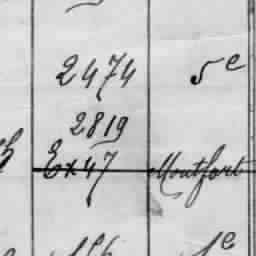 2474 5e
2819
Ex 47 Montfort